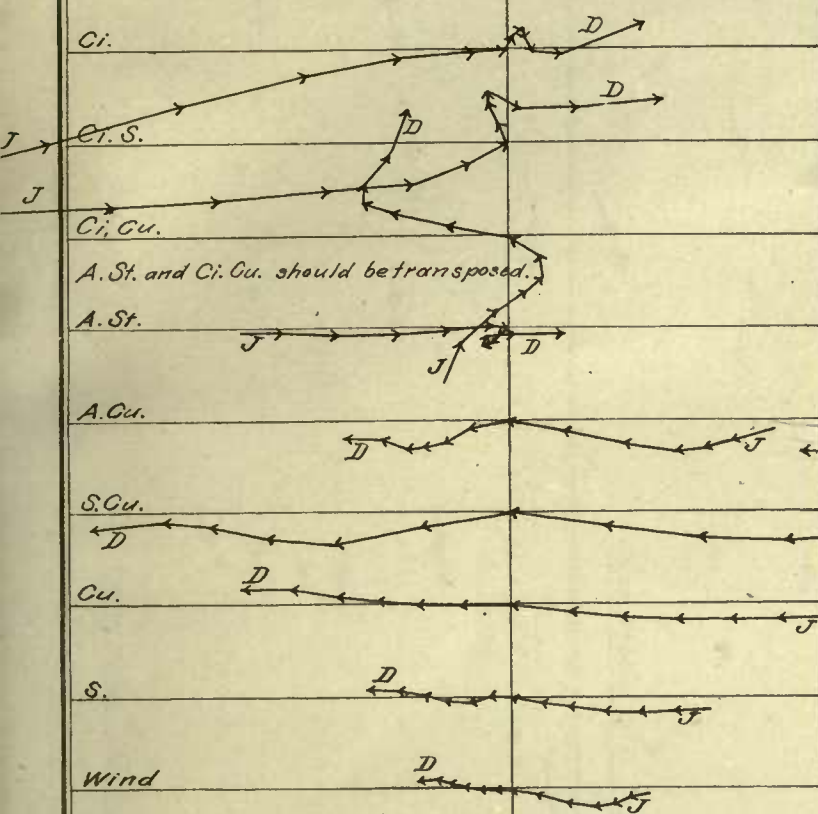 Ci.
D
D
Ci. S.
J
D
J
Ci. Cu.
A. St. and Ci. Cu. should be transposed.
A. St.
J
D
J
A. Cu.
D
J
S. Cu.
D
Cu.
D
J
S.
D
J
Wind
D
J